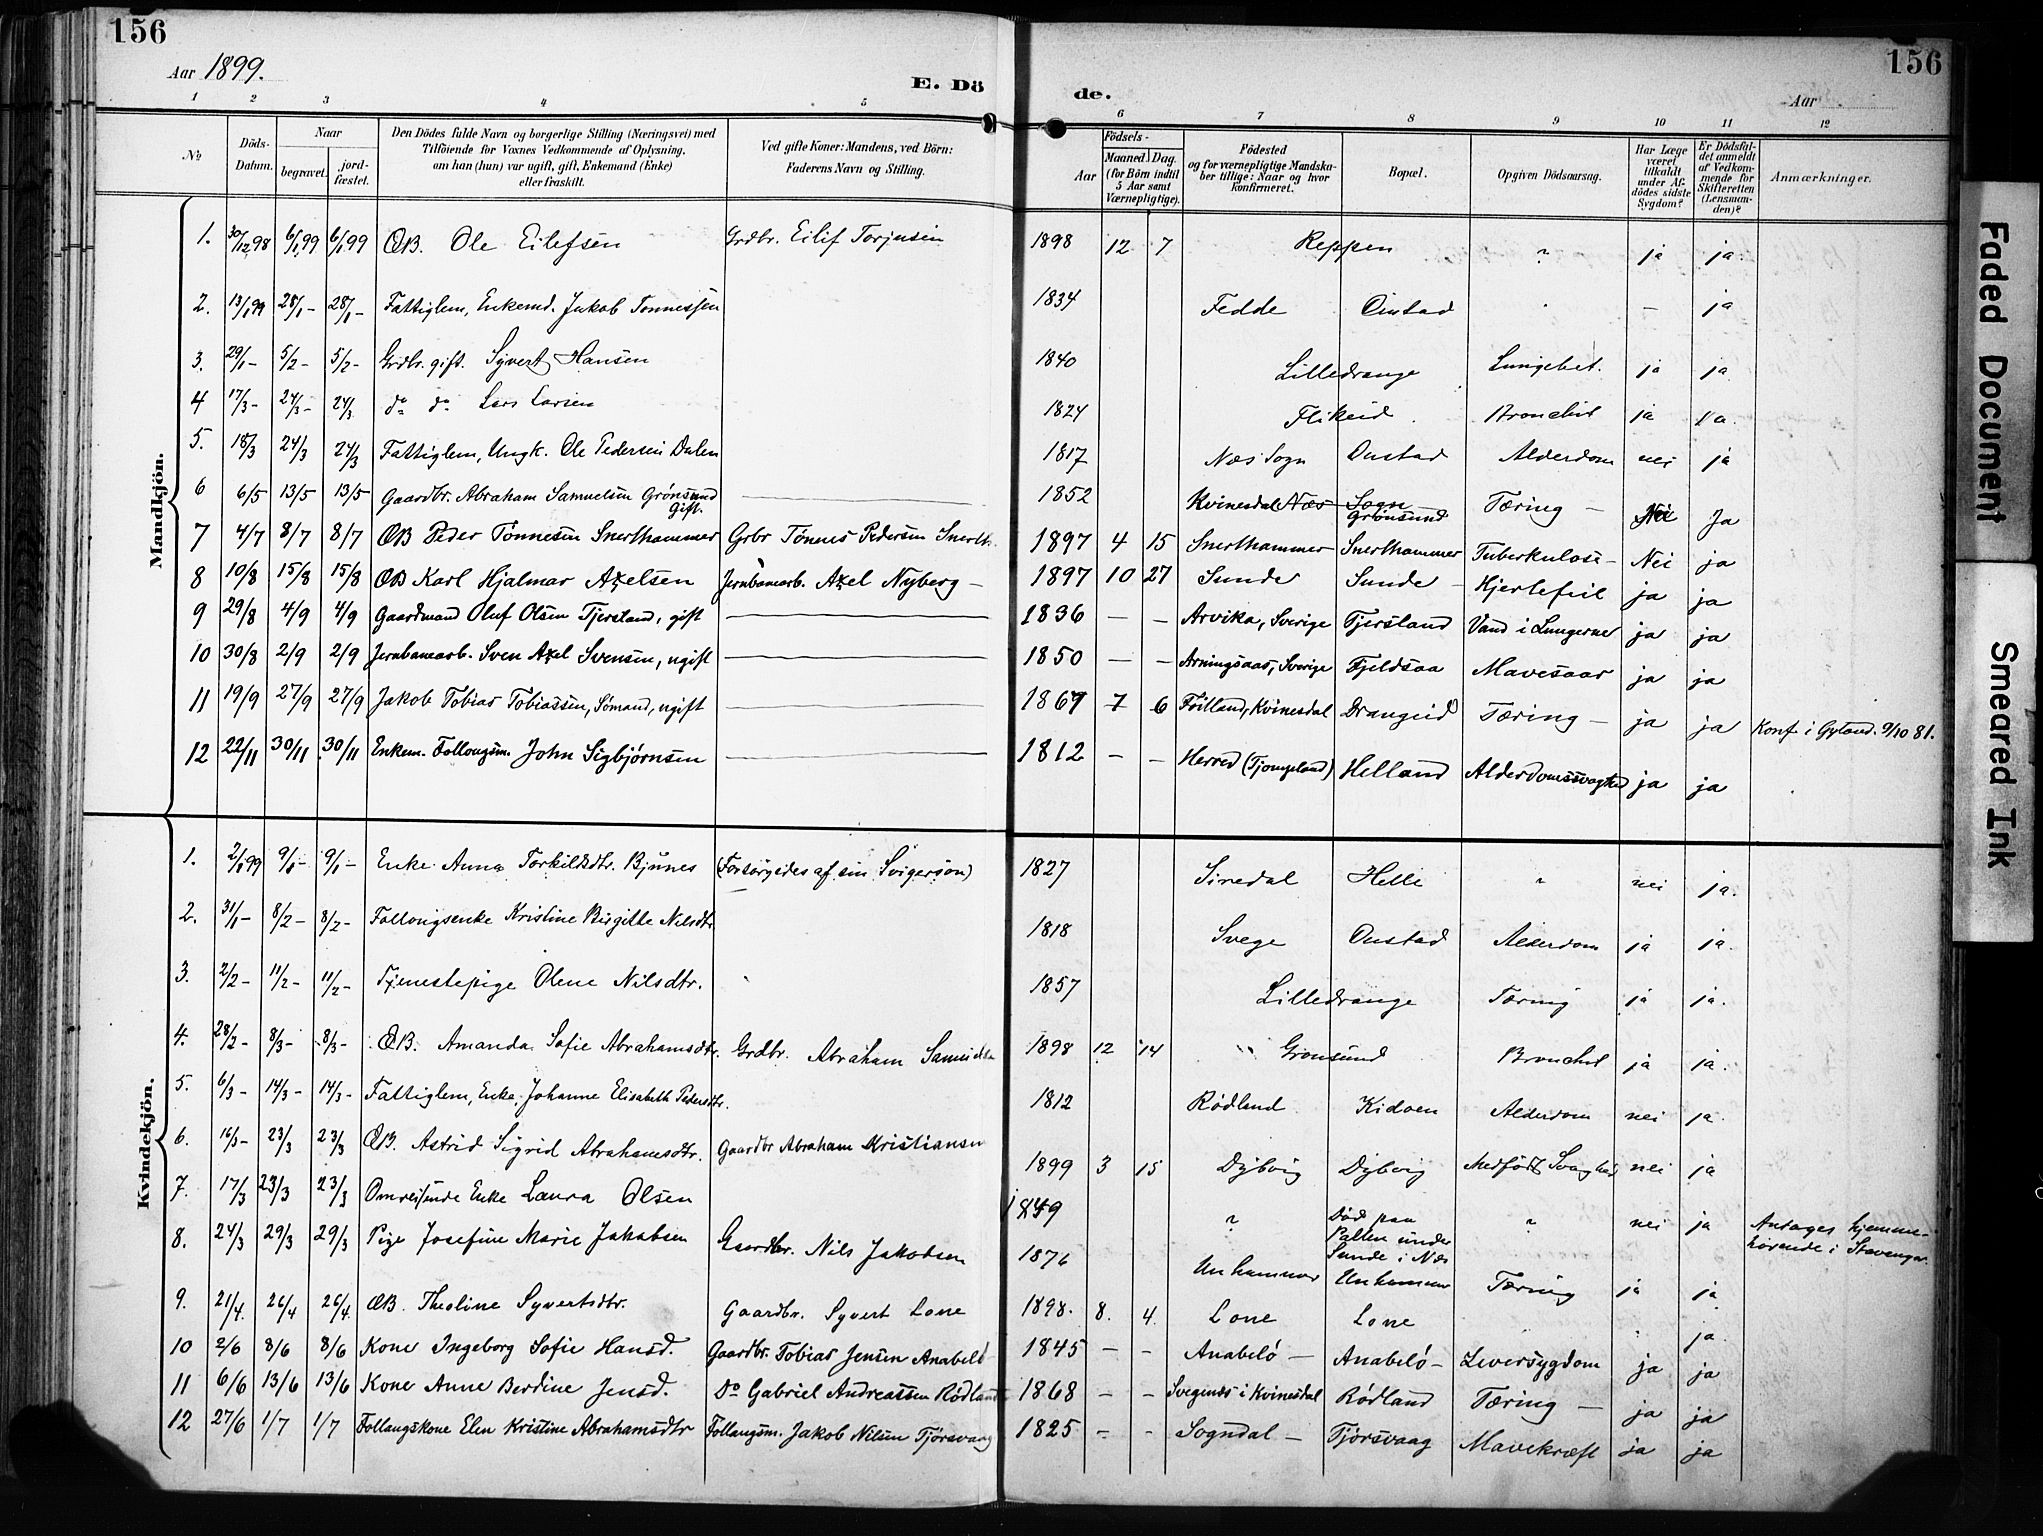 156
156
Aar 1899.
E. Dö
de.
Aar
1 2 3 4 5 6 7 8 9 10 11 12
No
Döds-Datum.
Naar
begravet.
jordfæstet.
Den Dödes fulde Navn og borgerlige Stilling (Næringsvei) med
Tilföiende for Voxnes Vedkommende af Oplysning,
om han (hun) var ugift, gift, Enkemand (Enke)
eller fraskilt.
Ved gifte Koner: Mandens, ved Börn:
Faderens Navn og Stilling.
Födsels-
Aar
Maaned. Dag.
(for Börn indtil
5 Aar samt
Værnepligtige).
Födested
og for værnepligtige Mandska-
ber tillige: Naar og hvor
konfirmeret.
Bopæl.
Opgiven Dödsaarsag.
Har Læge
været
tilkaldt
under Af-
dödes sidste
Sygdom?
Er Dödsfal-
det anmeldt
af Vedkom-
mende for
Skifteretten
(Lensman-
den)?
Anmærkninger.
Mandkjön.
1. 30/12 98 6/1 99 6/1 99 ÆB. Ole Eilefsen Grdbr. Eilif Torjusen 1898 12 7 Reppen " ja ja
2. 13/1 99 28/1- 28/1- Fattiglem, Enkemd. Jakob Tonnessen 1834 Fedde Oustad - ja
3. 29/1- 5/2- 5/2- Grdbr. gift. Syvert Hansen 1840 Lilledrange Lungebet. ja ja
4 17/3- 24/3- 24/3 do do Lars Larsen 1824 Flikeid Bronchit ja ja
5. 18/3 24/3 24/3 Fattiglem, Ungk. Ole Pedersen Dalen 1817 Næs Sogn Oustad Alderdom nei ja
6 6/5 13/5 13/5 Gaardbr. Abraham Samuelsen Grönsund gift. 1852 Kvinesdal Næs Sogn Grönsund Tæring - Nei Ja
7 4/7 8/7 8/7 ÆB Peder Tönnesen Snerthammer Grbr Tönnes Pedersen Snerth. 1897 4 15 Snerthammer Snerthammer Tuberkulose - Nei ja
8 10/8 15/8 15/8 ÆB Karl Hjalmar Axelsen Jernbanearb. Axel Nyberg - 1897 10 27 Sunde Sunde - Hjertefeil ja ja
9 29/8 4/9 4/9 Gaardmand Oluf Olsen Tjersland, gift 1836 - - Arvika, Sverige Tjersland Vand i Lungerne ja ja
10 30/8 2/9 2/9 Jernbanearb. Sven Axel Svensen, ugift 1850 - - Arningsaas, Sverige Fjeldsaa Mavesaar ja ja
11 19/9 27/9 27/9 Jakob Tobias Tobiassen, Sömand, ugift 1867 7 6 Föilland, Kvinesdal Drangeid Tæring - ja ja Konf. i Gyland. 9/10 81.
12 22/11 30/11 30/11 Enkem. Follaugsm. John Sigbjörnsen 1812 - - Herred (Tjompeland) Helland Alderdomssvaghed ja ja
Kvindekjön.
1. 2/1 99 9/1- 9/1- Enke Anna Torkildsdtr. Bjunes (Forsörgedes af sin Svigersön) 1827 Siredal Helle " nei ja.
2. 31/1- 8/2- 8/2- Follougsenke Kristine Birgitte Nilsdtr. 1818 Svege Oustad Alderdom ja ja.
3. 2/2- 11/2- 11/2- Tjenestepige Olene Nilsdtr. 1857 Lilledrange Tæring ja ja.
4. 28/2- 8/3- 8/3- ÆB. Amanda Sofie Abrahamsdtr. Grdbr. Abraham Samuelsen 1898 12 14 Gronsund Bronchit ja ja.
5. 6/3- 14/3- 14/3- Fattiglem, Enke, Johanne Elisabeth Pedersdtr. 1812 Rödland Kidoen Alderdom nei ja.
6. 16/3- 23/3 23/3 ÆB. Astrid Sigrid Abrahamsdtr. Gaardbr Abraham Kristiansen 1899 3 15 Dybvig Dybvig Medfödt Svaghed nei ja
7. 17/3 23/3 23/3 Omreisende Enke Laura Olsen 1849 " Död paa Pollen under Sunde i Næs " nei ja Antages hjemme-
hörende i Stavanger.
8. 24/3 29/3 29/3 Pige Josefine Marie Jakobsen Gaardbr. Nils Jakobsen 1876 Unhammer Unhammer Tæring ja ja
9. 21/4. 26/4 26/4. ÆB. Theoline Syvertsdtr. Gaardbr. Syvert Lone 1898. 8. 4. Lone Lone ja.
10 2/6 8/6 8/6 Kone Ingeborg Sofie Hansd. Gaardbr. Tobias Jensen Anabelö 1845 - - Anabelö - Anabelö - Leversygdom ja ja
11 6/6 13/6 13/6 Kone Anne Berdine Jensd. Do Gabriel Andreassen Rödland 1868 - - Svegenæs i Kvinesdal Rödland Tæring - ja ja
12 27/6 1/7 1/7 Follaugskone Elen Kristine Abrahamsdtr Follaugsm. Jakob Nilsen Tjörsvaag 1825 - - Sogndal - Tjörsvaag Mavekræft ja ja
Faded Document
Smeared Ink